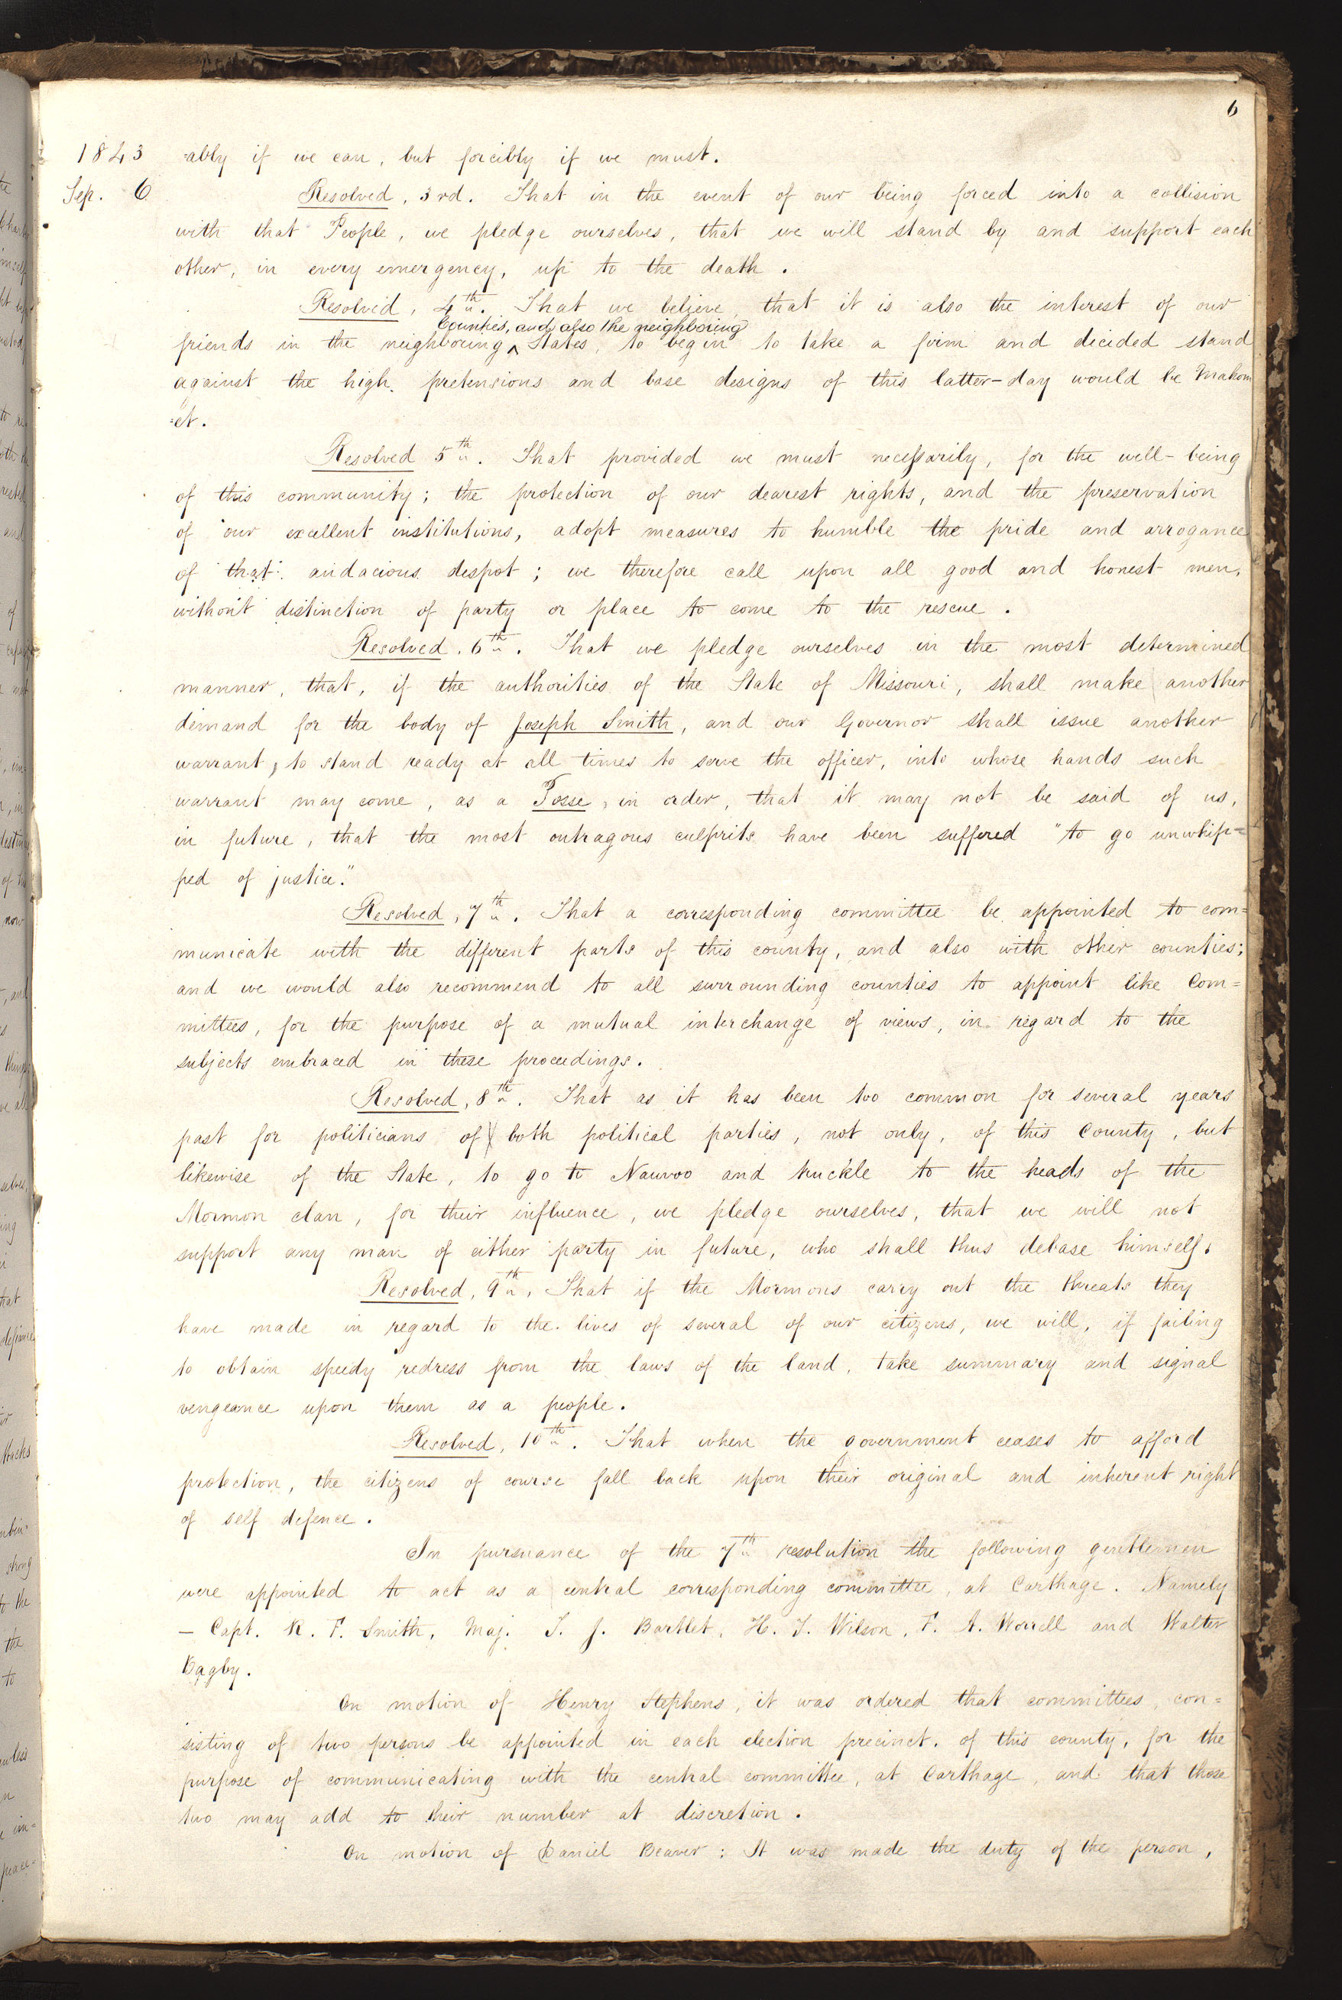 6
1843 -ably if we can, but forcibly if we must.
Sep. 6 Resolved, 3rd. That in the event of our being forced into a collision
with that People, we pledge ourselves, that we will stand by and support each
other, in every emergency, up to the death.
Resolved, 4th. That we believe, that it is also the interest of our
Counties, and also the neighboring
friends in the neighboring ^ States, to begin to take a firm and decided stand
against the high pretensions and base designs of this latter-day would be Mahom
-et.
Resolved 5th. That provided we must necessarily, for the well-being
of this community; the protection of our dearest rights, and the preservation
of our excellent institutions, adopt measures to humble the pride and arrogance
of that audacious despot; we therefore call upon all good and honest men,
without distinction of party or place to come to the rescue.
Resolved, 6th. That we pledge ourselves in the most determined
manner, that, if the authorities of the State of Missouri, shall make another
demand for the body of Joseph Smith, and our Governor shall issue another
warrant, to stand ready at all times to serve the officer, into whose hands such
warrant may come, as a Posse, in order, that it may not be said of us,
in future, that the most outragous culprits have been suffered "to go unwhip=
ped of justice."
Resolved, 7th. That a corresponding committee be appointed to com=
municate with the different parts of this county, and also with other counties;
and we would also recommend to all surrounding counties to appoint like Com=
mittees, for the purpose of a mutual interchange of views, in regard to the
subjects embraced in these proceedings.
Resolved, 8th. That as it has been too common for several years
past for politicians of both political parties, not only, of this County, but
likewise of the State, to go to Nauvoo and truckle to the heads of the
Mormon clan, for their influence, we pledge ourselves, that we will not
support any man of either party in future, who shall thus debase himself.
Resolved, 9th, That if the Mormons carry out the threats they
have made in regard to the lives of several of our citizens, we will, if failing
to obtain speedy redress from the laws of the land, take summary and signal
vengeance upon them as a people.
Resolved, 10th. That when the government ceases to afford
protection, the citizens of course fall back upon their original and inherent right
of self defence.
In pursuance of the 7th resolution the following gentlemen
were appointed to act as a central corresponding committee, at Carthage. Namely
— Capt. R. F. Smith, Maj. T. J. Bartlet, H. T. Wilson, F. A. Worrell and Walter
Bagby.
On motion of Henry Stephens, it was ordered that committees, con=
sisting of two persons be appointed in each election precinct, of this county, for the
purpose of communicating with the central committee, at Carthage, and that those
two may add to their number at discretion.
On motion of Daniel Beaver: It was made the duty of the person,